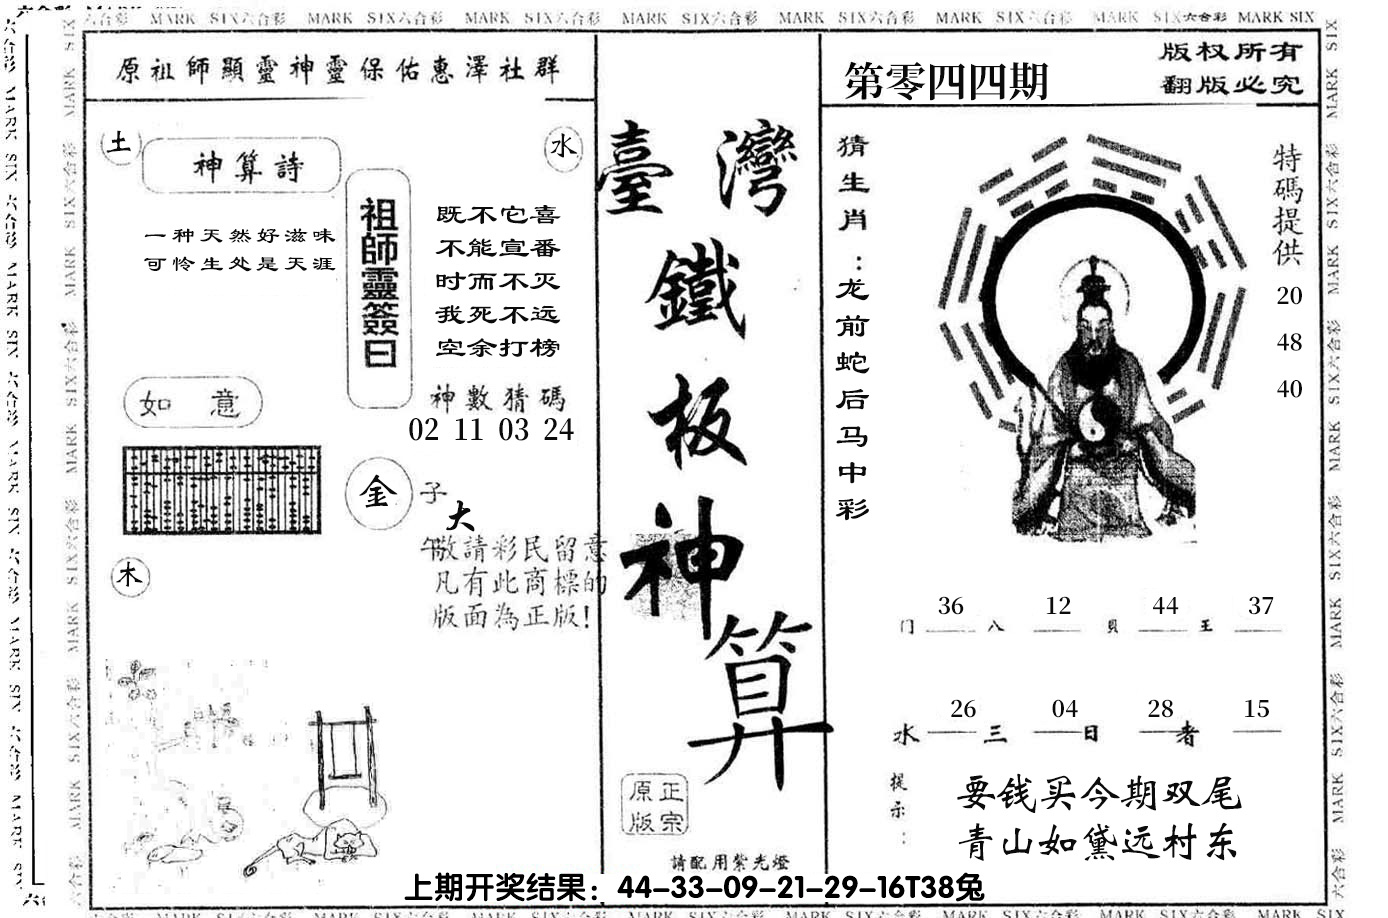 MARK SIX六合彩 MARK SIX六合彩 MARK SIX六合彩 MARK SIX六合彩 MARK SIX六合彩 MARK SIX六合彩 MARK SIX六合彩 MARK SIX
原祖師顯靈神靈保佑惠澤社群
土
神算詩
水
一种天然好滋味
可怜生处是天涯
祖師靈簽曰
既不它喜
不能宣番
时而不灭
我死不远
空余打榜
神數猜碼
02 11 03 24
如意
金
子
大
午
敬請彩民留意
凡有此商標的
版面為正版!
木
臺灣
鐵
板
神
算
正宗
原版
請配用紫光燈
第零四四期
版权所有
翻版必究
猜生肖:龙前蛇后马中彩
特碼提供
20
48
40
36 12 44 37
门 八 貝 王
26 04 28 15
水 三 日 者
提示:
要钱买今期双尾
青山如黛远村东
上期开奖结果：44-33-09-21-29-16T38兔